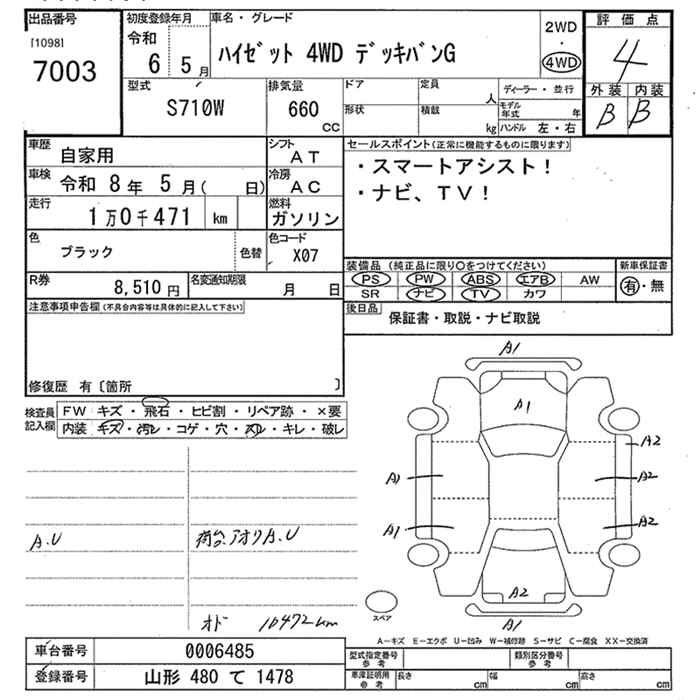 出品番号
[1098]
7003
初度登録年月
令和
6 5月
車名・グレード
ハイゼット 4WD デッキバンG
2WD
・
4WD
評価点
4
外装 内装
B B
型式
S710W
排気量
660
CC
ドア
形状
定員
人
積載
kg
ディーラー・並行
モデル年式
年
ハンドル 左・右
車歴
自家用
シフト
AT
車検
令和 8年 5月( 日)
冷房
AC
走行
1万0千471 km
燃料
ガソリン
色
ブラック
色替
色コード
X07
R券
8,510円
名変通知期限
月 日
セールスポイント(正常に機能するものに限ります)
・スマートアシスト!
・ナビ、TV!
装備品 (純正品に限り○をつけてください)
PS PW ABS エアB AW
SR ナビ TV カワ
新車保証書
有・無
後日品
保証書・取説・ナビ取説
注意事項申告欄(不具合内容等は具体的に記入して下さい)
修復歴 有〔箇所 〕
検査員記入欄
FW キズ・飛石・ヒビ割・リペア跡・×要
内装 キズ・汚レ・コゲ・穴・スレ・キレ・破レ
A.U
荷台.アオリA.U
オド 10472km
A1
A1
A2
A1
A2
A1
A2
A2
A1
スペア
A-キズ E-エクボ U-凹み W-補修跡 S-サビ C-腐食 XX-交換済
車台番号
0006485
登録番号
山形 480 て 1478
型式指定番号
参考
類別区分番号
参考
車庫証明用
参考
長さ
cm
幅
cm
高さ
cm